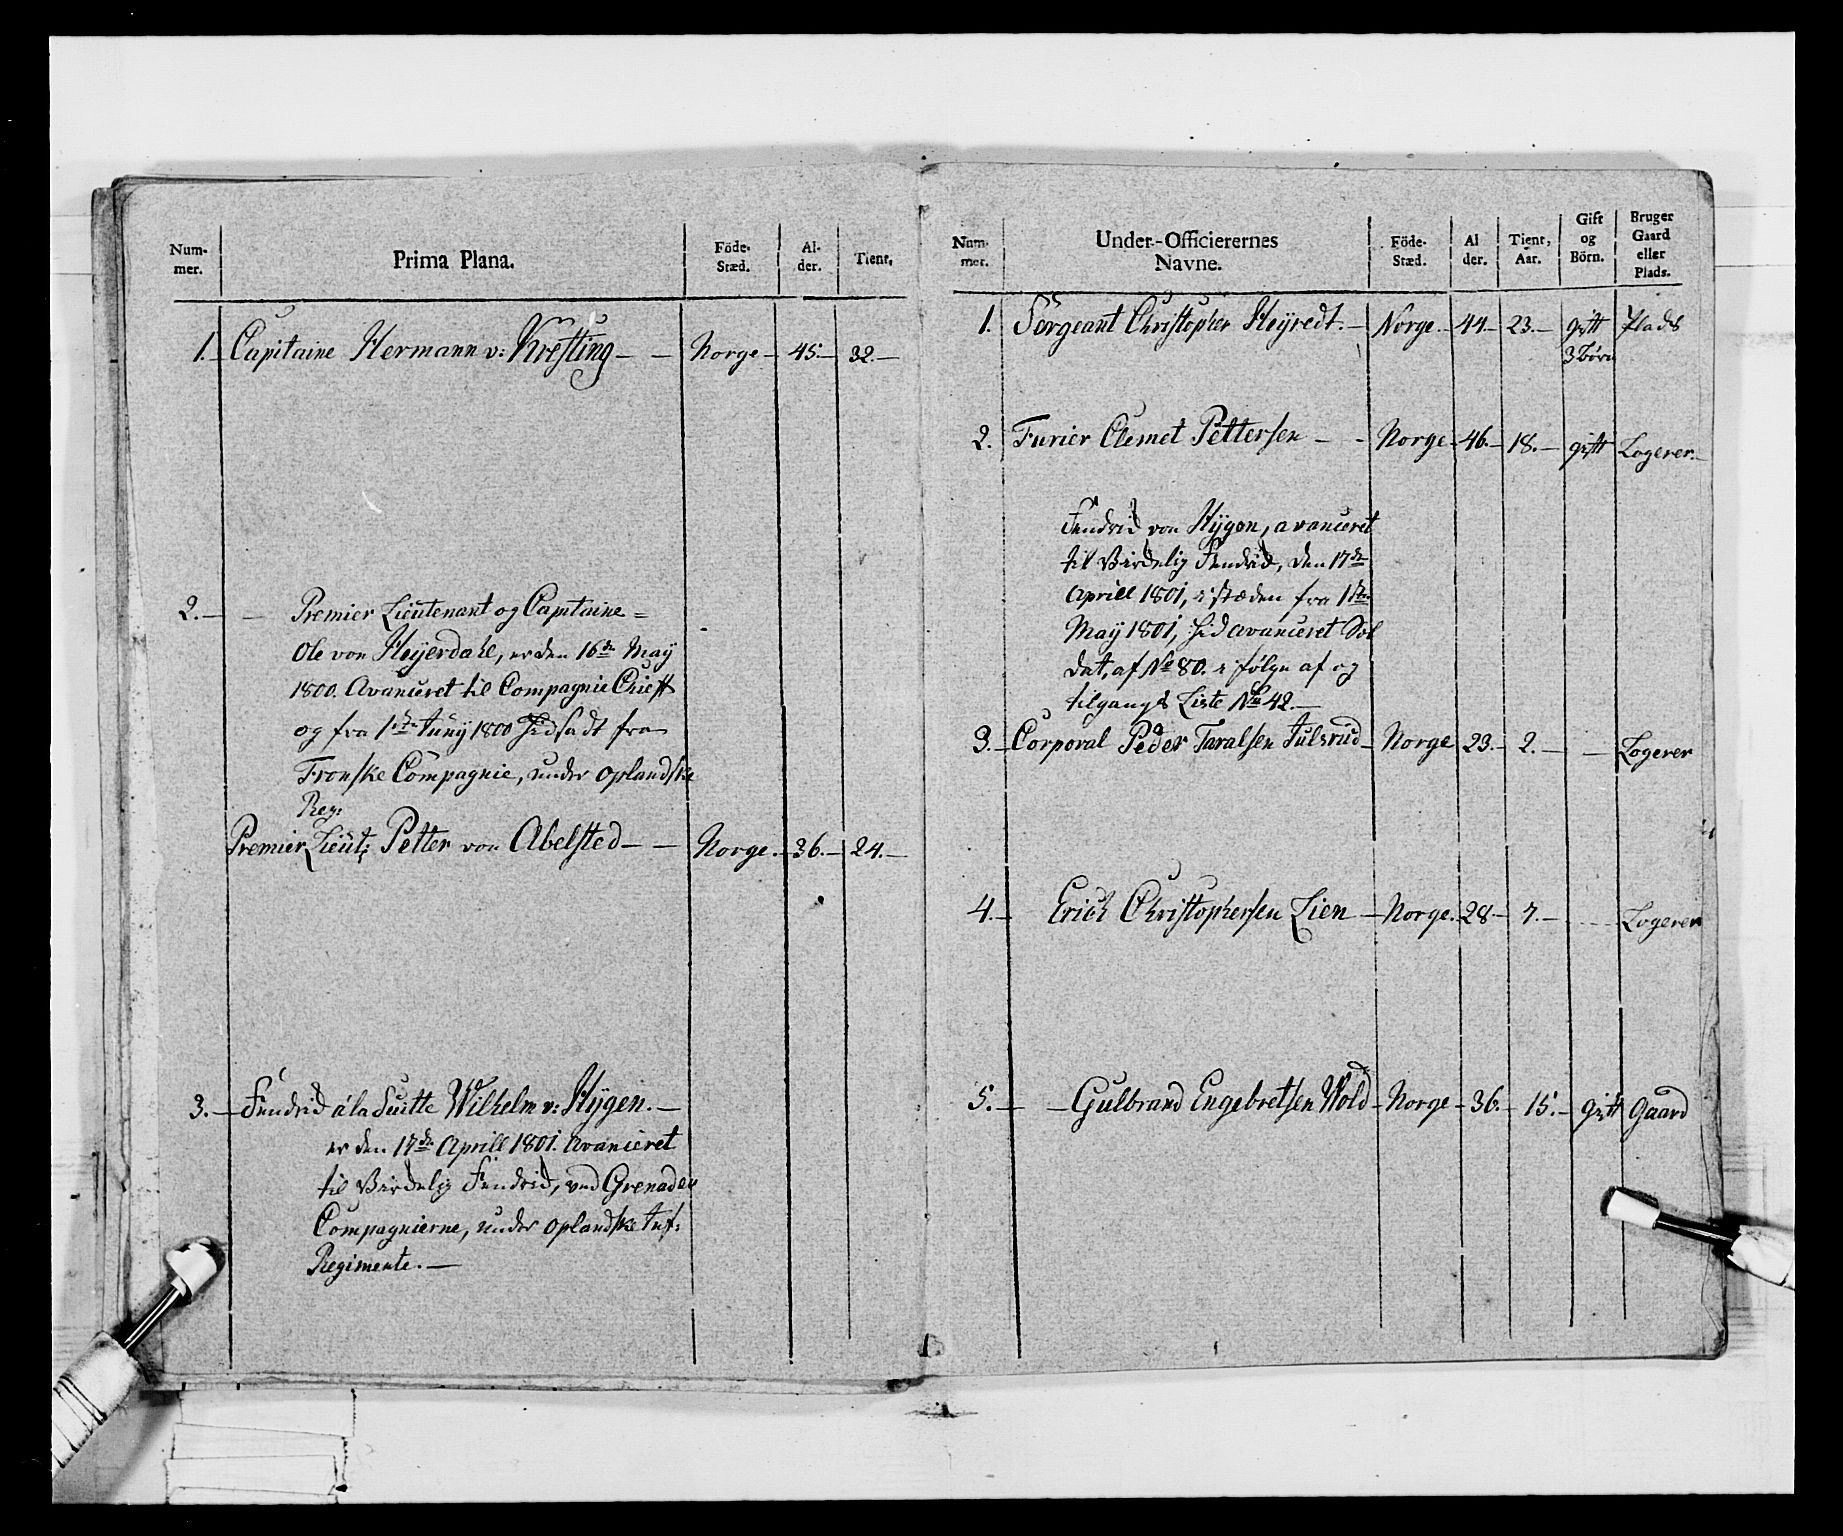 Num-
mer.
Prima Plana.
Föde-
Stæd.
Al-
der.
Tient.
1. Capitaine Hermann v: Krefting - - Norge - 45 - 32. -
2. - - Premier Lieutenant og Capitaine =
Ole von Heyerdahl, er den 16de May
1800. Avanceret til Compagnie Chieff
og fra 1ste Juny 1800 hidsadt fra
Fronske Compagnie, under Oplandske
Reg:
Premier Lieut: Petter von Abelsted - - Norge. - 36. - 24. -
3. - Fendrid á la Suitte Wilhelm v: Hygen. -
er den 17de Aprill 1801. Avanceret
til Virdelig Fendrid, ved Grenadeer
Compagnierne, under Oplandske Inf:
Regimente. -
Num-
mer.
Under-Officierernes
Navne.
Föde-
Stæd.
Al
der.
Tient,
Aar.
Gift
og
Börn.
Bruger
Gaard
eller
Plads.
1. Sergeant Christopher Heyredt. - Norge. - 44 - 23. - gift Plads
3 Børn
2. Furier Clemet Pettersen - - Norge - 46. - 18. - gift Logerer. -
Fendrid von Hygen, avanceret
til Virdelig Fendrid, den 17de
Aprill 1801, i stæden fra 1ste
May 1801, hid avanceret Sol
dat, af No 80. i følge af og
tilgangs Liste No 42. -
3. - Corporal Peder Taralsen Julsrud - Norge 23. - 2. - - Logerer
4. - Erich Christophersen Lien - Norge. 28 - 7. - Logerer
5. - - Gulbrand Engebretsen Wold - Norge - 36. - 15. - gift Gaard